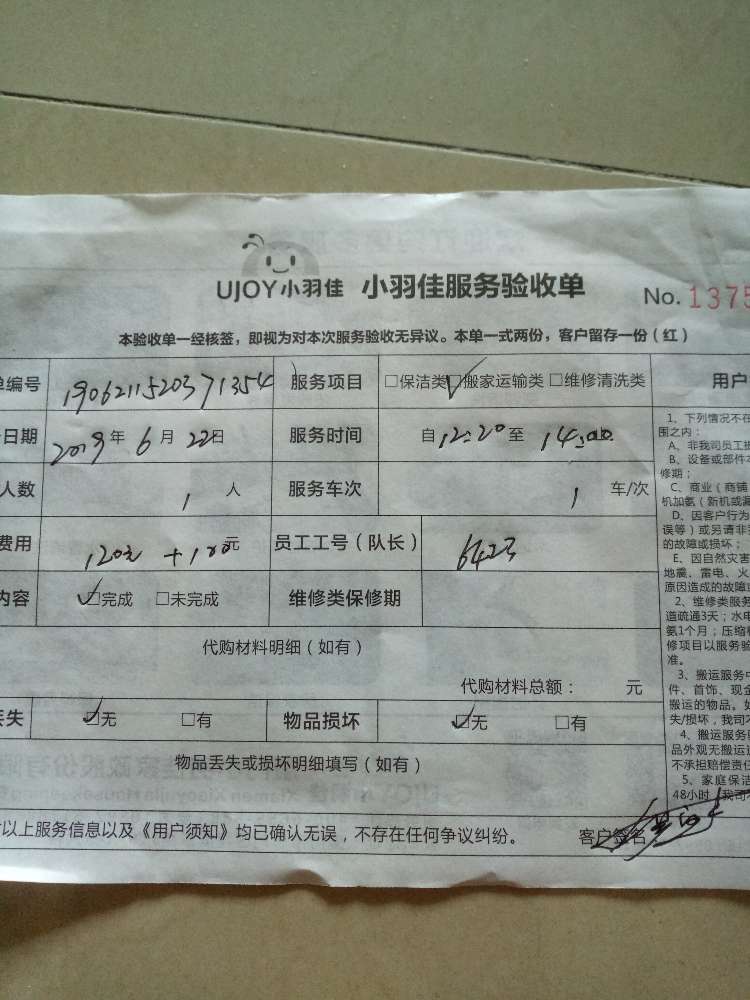 UJOY小羽佳 小羽佳服务验收单 No. 1375
本验收单一经核签，即视为对本次服务验收无异议。本单一式两份，客户留存一份（红）
单编号 190621152037 1354 服务项目 □保洁类 ☑搬家运输类 □维修清洗类 用户
日期 2019年 6月 22日 服务时间 自 12:20 至 14:00
人数 1 人 服务车次 1 车/次
费用 120元 + 100元 员工工号（队长） 6423
内容 ☑完成 □未完成 维修类保修期
代购材料明细（如有）
代购材料总额： 元
丢失 ☑无 □有 物品损坏 ☑无 □有
物品丢失或损坏明细填写（如有）
以上服务信息以及《用户须知》均已确认无误，不存在任何争议纠纷。 客户签名
1、下列情况不在
围之内：
A、非我司员工
B、设备或部件本
修期；
C、商业（商铺
机加氨（新机或漏
D、因客户行为
误等）或另请非
的故障或损坏；
E、因自然灾害
地震、雷电、火
原因造成的故障或
2、维修类服务
道疏通3天；水电
氨1个月；压缩
修项目以服务验
准。
3、搬运服务中
件、首饰、现金
搬运的物品。如
失/损坏，我司不
4、搬运服务
品外观无搬运
不承担赔偿责任
5、家庭保洁
48小时